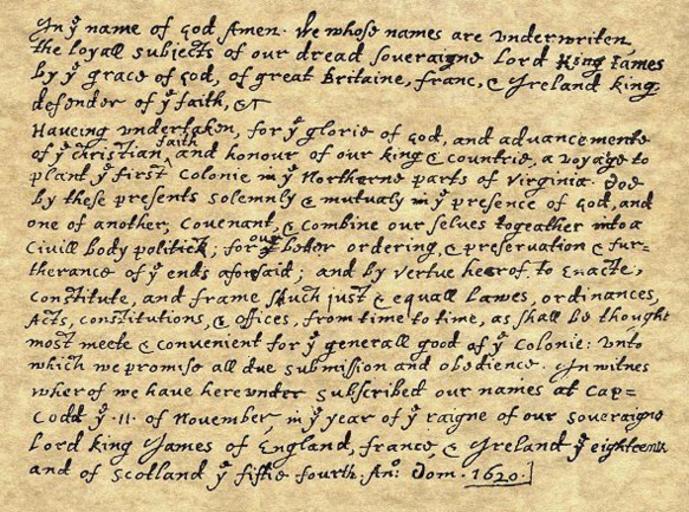 In yͤ name of god Amen. We whose names are vnderwriten,
the loyall subjects of our dread soveraigne Lord King Iames
by yͤ grace of god, of great Britaine, franc, & Ireland king,
defender of yͤ faith, &c
Haveing vndertaken, for yͤ glorie of god, and advancemente
of yͤ christian faith and honour of our king & countrie, a voyage to
plant yͤ first Colonie in yͤ Northerne parts of Virginia. Doe
by these presents solemnly & mutualy in yͤ presence of god, and
one of another, Covenant, & Combine our selves togeather into a
Civill body politick; for our better ordering, & preservation & fur=
therance of yͤ ends aforesaid; and by vertue hearof, to Enacte,
Constitute, and frame shuch just & equall Lawes, ordinances,
Acts, constitutions, & offices, from time to time, as shall be thought
most meete & convenient for yͤ generall good of yͤ Colonie: vnto
which we promise all due submission and obedience. In witnes
wherof we have herevnder subscribed our names at Cap=
Codd yͤ ·11· of November, in yͤ year of yͤ raigne of our soveraigne
Lord king James of England, france, & Ireland yͤ eighteenth
and of Scotland yͤ fiftie fourth. Anͦ: Dom. 1620.]